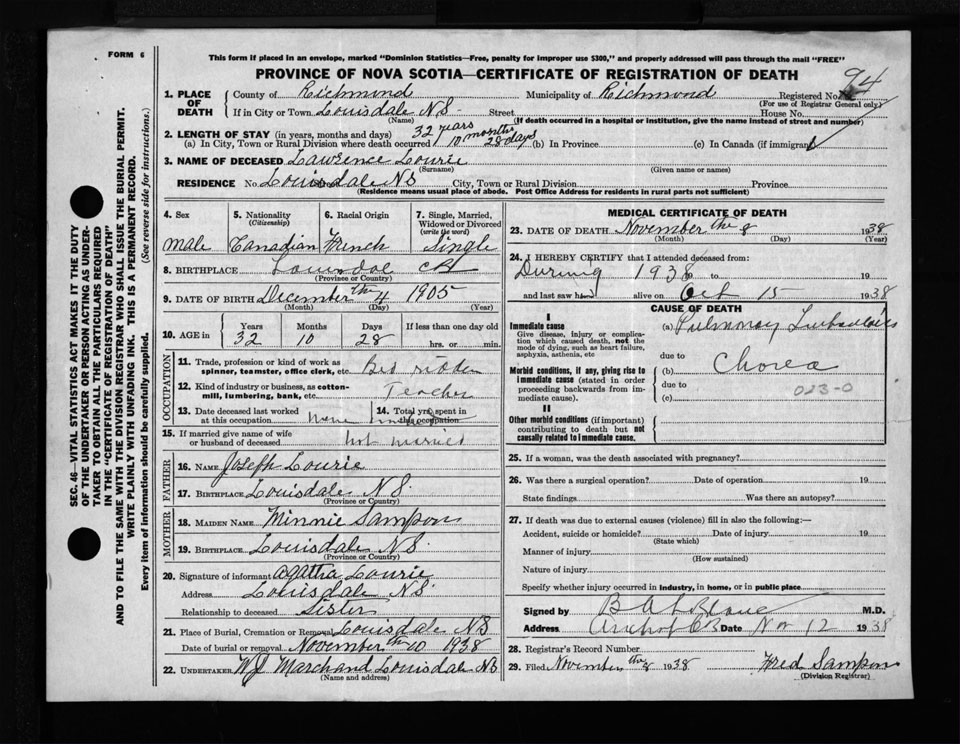 FORM 6
This form if placed in an envelope, marked "Dominion Statistics—Free, penalty for improper use $300," and properly addressed will pass through the mail "FREE"
PROVINCE OF NOVA SCOTIA—CERTIFICATE OF REGISTRATION OF DEATH
94
1. PLACE OF DEATH
County of Richmond Municipality of Richmond Registered No.
(For use of Registrar General only)
If in City or Town Louisdale N S Street House No.
(Name) (If death occurred in a hospital or institution, give the name instead of street and number)
2. LENGTH OF STAY (in years, months and days) 32 years
(a) In City, Town or Rural Division where death occurred 10 months 28 days (b) In Province (c) In Canada (if immigrant)
3. NAME OF DECEASED Lawrence Lourie
(Surname) (Given name or names)
RESIDENCE No. Louisdale N S City, Town or Rural Division Province
(Residence means usual place of abode. Post Office Address for residents in rural parts not sufficient)
4. Sex
male
5. Nationality
(Citizenship)
Canadian
6. Racial Origin
French
7. Single, Married, Widowed or Divorced
(write the word)
Single
8. BIRTHPLACE Louisdal CB
(Province or Country)
9. DATE OF BIRTH December the 4 1905
(Month) (Day) (Year)
10. AGE in
Years Months Days If less than one day old
32 10 28 hrs. or min.
OCCUPATION
11. Trade, profession or kind of work as spinner, teamster, office clerk, etc. Bed ridden
12. Kind of industry or business, as cotton-mill, lumbering, bank, etc. Teacher
13. Date deceased last worked at this occupation
14. Total yrs. spent in this occupation
15. If married give name of wife or husband of deceased not married
FATHER
16. NAME Joseph Lourie
17. BIRTHPLACE Louisdale N S.
(Province or Country)
MOTHER
18. MAIDEN NAME Minnie Sampson
19. BIRTHPLACE Louisdale N S.
(Province or Country)
20. Signature of informant Agatha Lourie
Address Louisdale N S.
Relationship to deceased Sister
21. Place of Burial, Cremation or Removal Louisdale N S
Date of burial or removal November th 10 1938
22. UNDERTAKER W J Marchand Louisdale NS
(Name and address)
MEDICAL CERTIFICATE OF DEATH
23. DATE OF DEATH November the 8 1938
(Month) (Day) (Year)
24. I HEREBY CERTIFY that I attended deceased from:
During 1938 to 19
and last saw h alive on Oct 15 1938
CAUSE OF DEATH
I
Immediate cause
Give disease, injury or complication which caused death, not the mode of dying, such as heart failure, asphyxia, asthenia, etc
(a) Pulmonary Tuberculosis
due to
Morbid conditions, if any, giving rise to immediate cause (stated in order proceeding backwards from immediate cause).
(b) Chorea
due to
023-0
(c)
II
Other morbid conditions (if important) contributing to death but not causally related to immediate cause.
25. If a woman, was the death associated with pregnancy?
26. Was there a surgical operation? Date of operation 19
State findings Was there an autopsy?
27. If death was due to external causes (violence) fill in also the following:—
Accident, suicide or homicide? Date of injury 19
(State which)
Manner of injury
(How sustained)
Nature of injury
Specify whether injury occurred in industry, in home, or in public place
Signed by B A LeBlanc M.D.
Address Arichat CB Date Nov 12 1938
28. Registrar's Record Number
29. Filed November the 8 1938 Fred Sampson
(Division Registrar)
SEC. 46—VITAL STATISTICS ACT MAKES IT THE DUTY
OF THE UNDERTAKER OR PERSON ACTING AS UNDER-
TAKER TO OBTAIN ALL THE PARTICULARS REQUIRED
IN THE "CERTIFICATE OF REGISTRATION OF DEATH"
AND TO FILE THE SAME WITH THE DIVISION REGISTRAR WHO SHALL ISSUE THE BURIAL PERMIT.
WRITE PLAINLY WITH UNFADING INK. THIS IS A PERMANENT RECORD.
Every item of information should be carefully supplied. (See reverse side for instructions.)